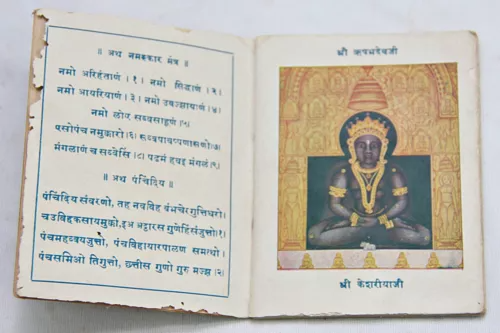 ॥ अथ नमस्कार मंत्र ॥
नमो अरिहंताणं ।१। नमो सिद्धाणं ।२।
नमो आयरियाणं ।३। नमो उवज्झायाणं ।४।
नमो लोए सव्वसाहूणं ।५।
एसोपंच नमुकारो ।६। सव्वपावप्पणासणो ।७।
मंगलाणं च सव्वेसिं ।८। पढमं हवइ मंगलं ।९।
॥ अथ पंचिंदिय ॥
पंचिंदिय संवरणो, तह नवविह बंभचेर गुत्तिधरो।
चउविहकसायमुक्को, इअ अट्ठारस गुणेहिं संजुत्तो ।१।
पंचमहव्वयजुत्तो, पंचविहायारपालण समत्थो।
पंचसमिओ तिगुत्तो, छत्तीस गुणो गुरु मज्झ ।२।
श्री ऋषभदेवजी
श्री केशरीयाजी